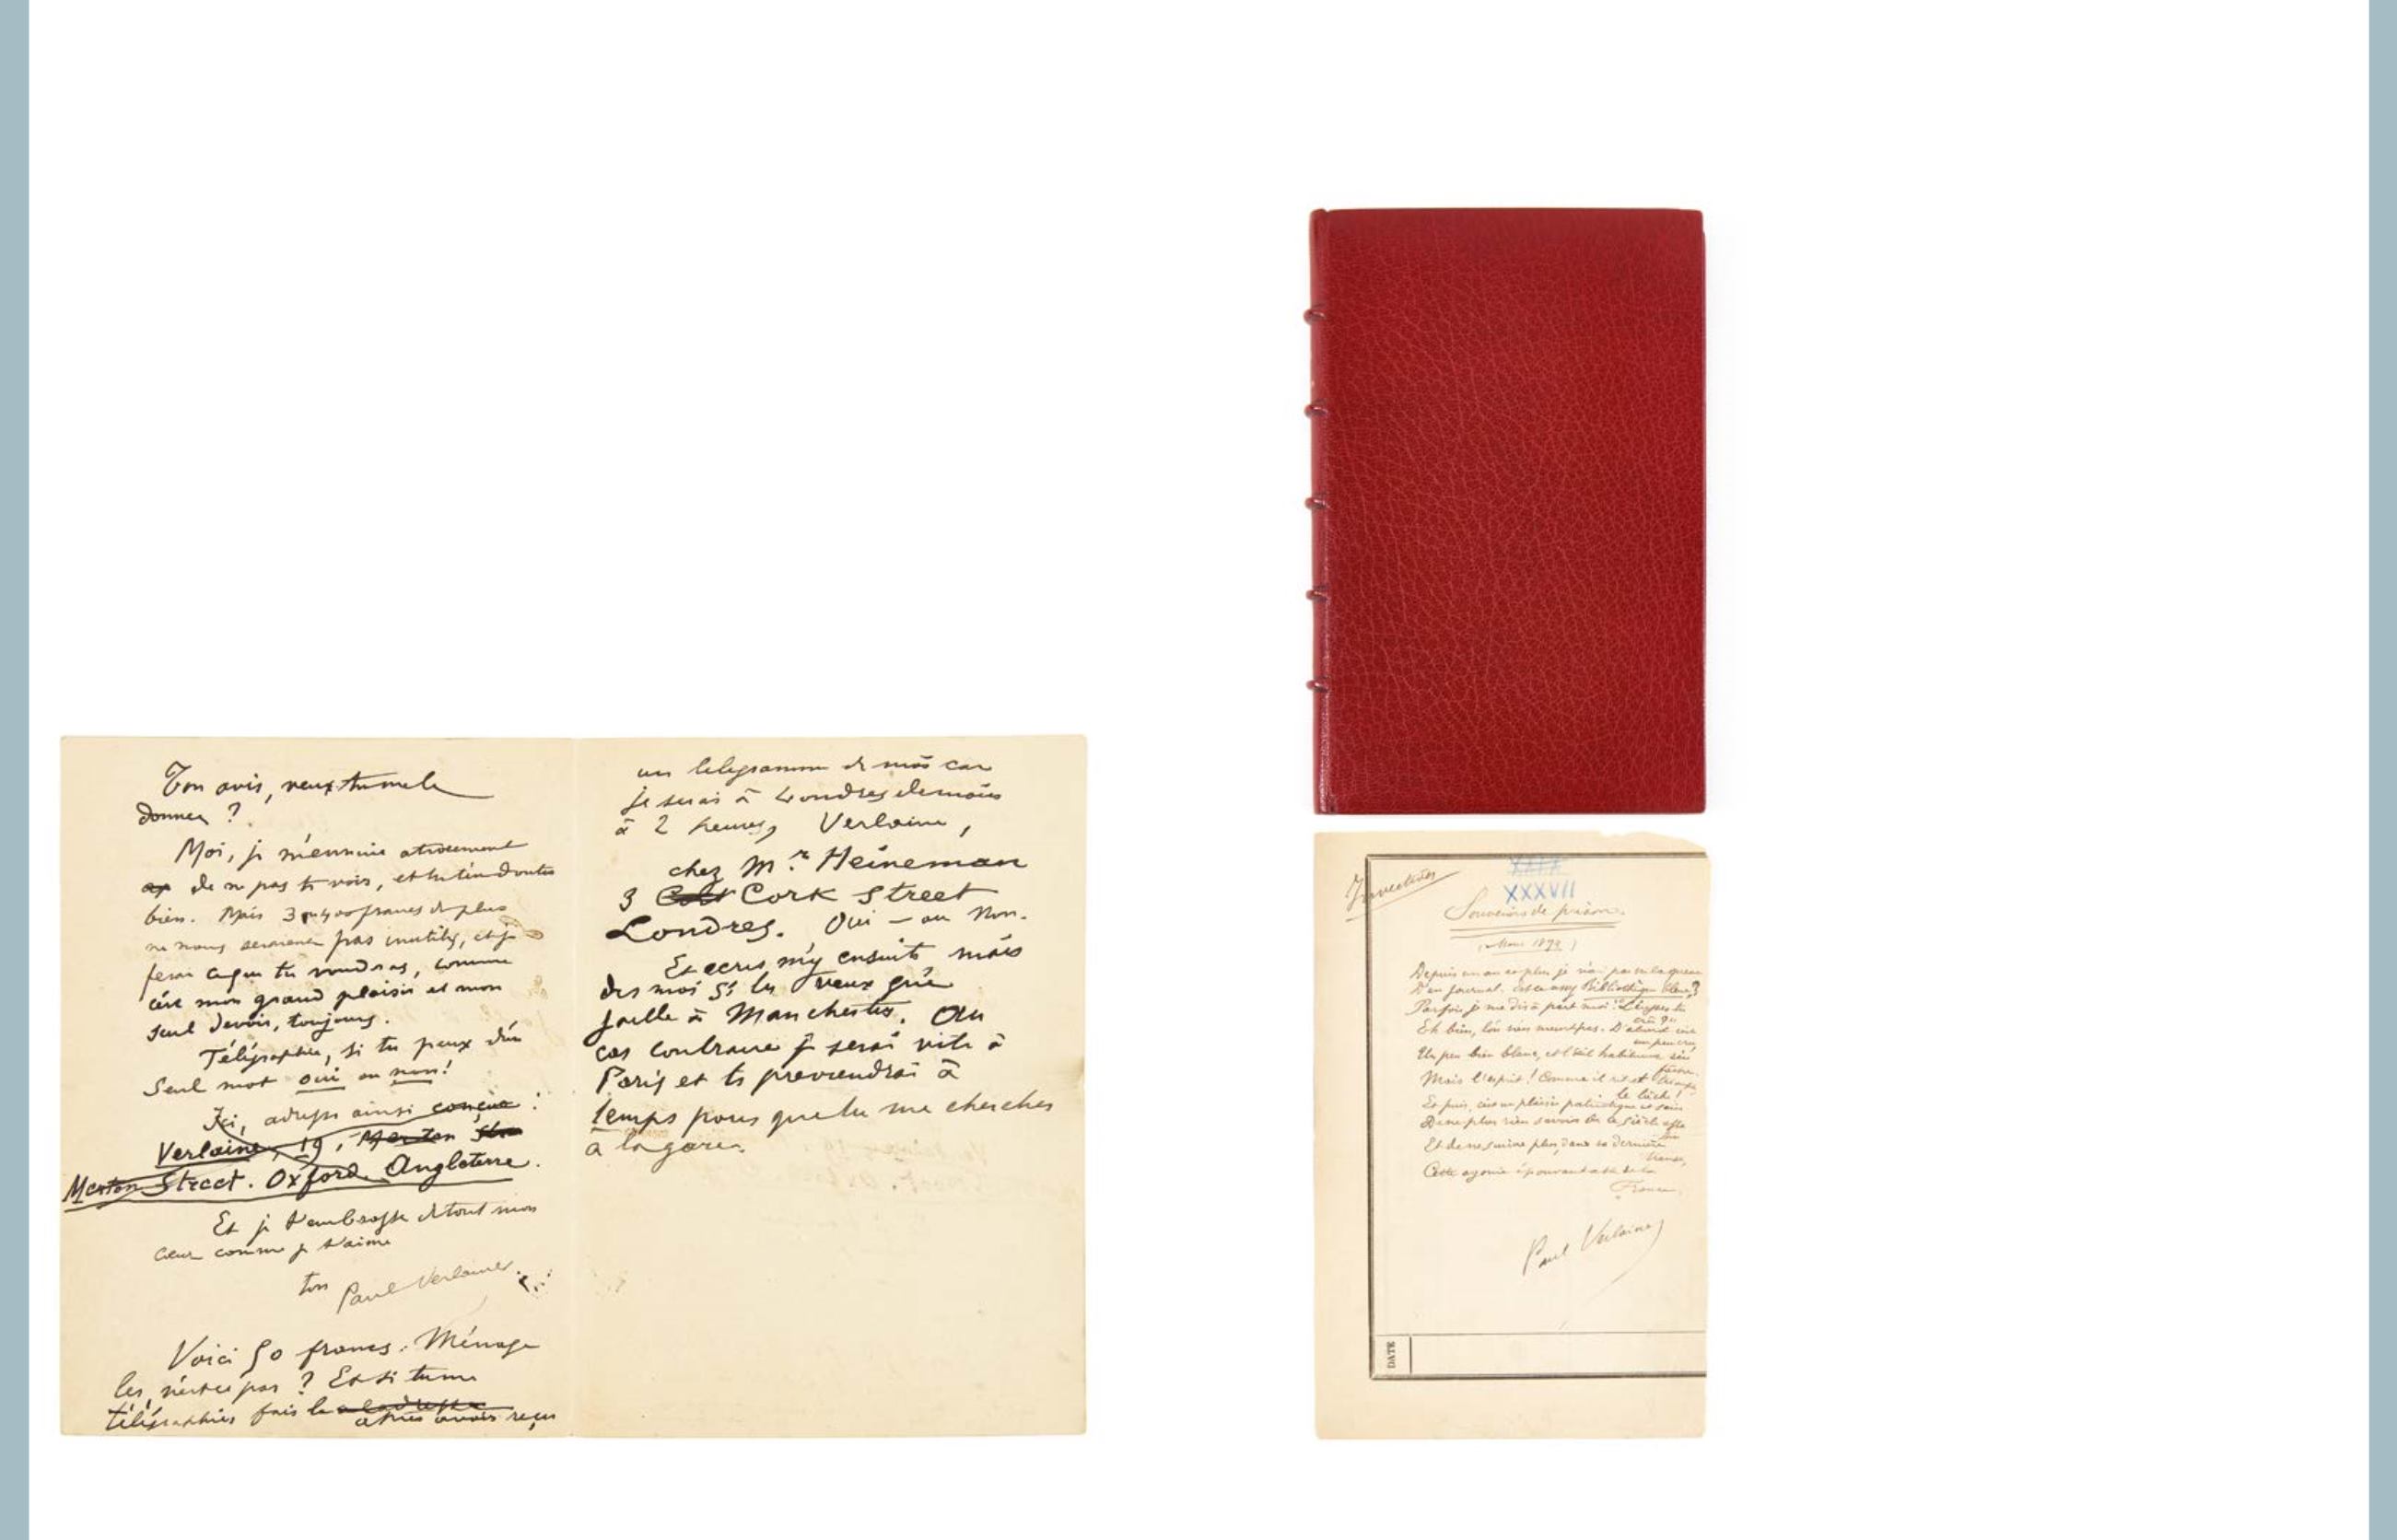 Ton avis, veux-tu me le
donner ?
Moi, je m'ennuie atrocement
de ne pas te voir, et tu t'en doutes
bien. Mais 3 ou 400 francs de plus
ne nous seraient pas inutiles, et je
ferai ce que tu voudras, comme
c'est mon grand plaisir et mon
seul devoir, toujours.
Télégraphie, si tu peux d'un
seul mot oui ou non !
Ici, adresse ainsi conçue :
Verlaine, 19, Merton Stre
Merton Street. Oxford. Angleterre.
Et je t'embrasse de tout mon
cœur comme je t'aime
ton Paul Verlaine.
Voici 50 francs. Ménage
les, n'est-ce pas ? Et si tu me
télégraphies fais le
après avoir reçu
un télégramme de moi car
je serai à Londres demain
à 2 heures, Verlaine,
chez Mr. Heineman
3 Cork Street
Londres. Oui — ou non.
Et écris m'y ensuite, mais
dis moi si tu veux que
j'aille à Manchester. Au
cas contraire je serai vite à
Paris et te préviendrai à
temps pour que tu me cherches
à la gare.
Invectives
XXIX
XXXVII
Souvenirs de prison.
(Mars 1874)
Depuis un an et plus je n'ai pas vu la queue
D'un journal. Est-ce assez Bibliothèque bleue ?
Parfois je me dis à part moi : "L'eusses-tu
cru ?"
Eh bien, l'on n'en meurt pas. D'abord c'est
un peu cru,
Un peu bien blanc, et l'œil habitueux s'en
fâche.
Mais l'esprit ! comme il rit et triomphe,
le lâche !
Et puis, c'est un plaisir patriotique et sain
De ne plus rien savoir de ce siècle assassin
Et de ne suivre plus, dans sa dernière
transe,
Cette agonie épouvantable de la
France.
Paul Verlaine
DATE